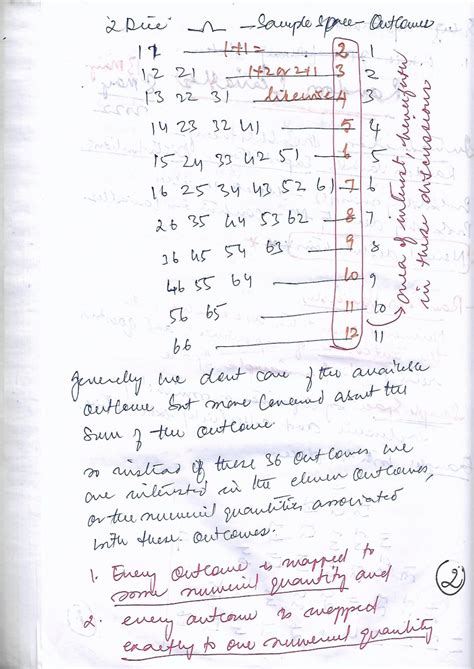 2 Dice — Ω — Sample Space - Outcomes
11 — 1+1= 2 1
12 21 — 1+2 or 2+1 3 2
13 22 31 — likewise 4 3
14 23 32 41 — 5 4
15 24 33 42 51 — 6 5
16 25 34 43 52 61 — 7 6
26 35 44 53 62 — 8 7
36 45 54 63 — 9 8
46 55 64 — 10 9
56 65 — 11 10
66 — 12 11
area of interest, henceforth
in these discussions
generally we dont care of the available
outcome but more concerned about the
Sum of the outcome
so instead of these 36 outcomes we
are interested in the eleven outcomes,
or the numerical quantities associated
with these outcomes.
1. Every outcome is mapped to
some numerical quantity and
2. every outcome is mapped
exactly to one numerical quantity
2